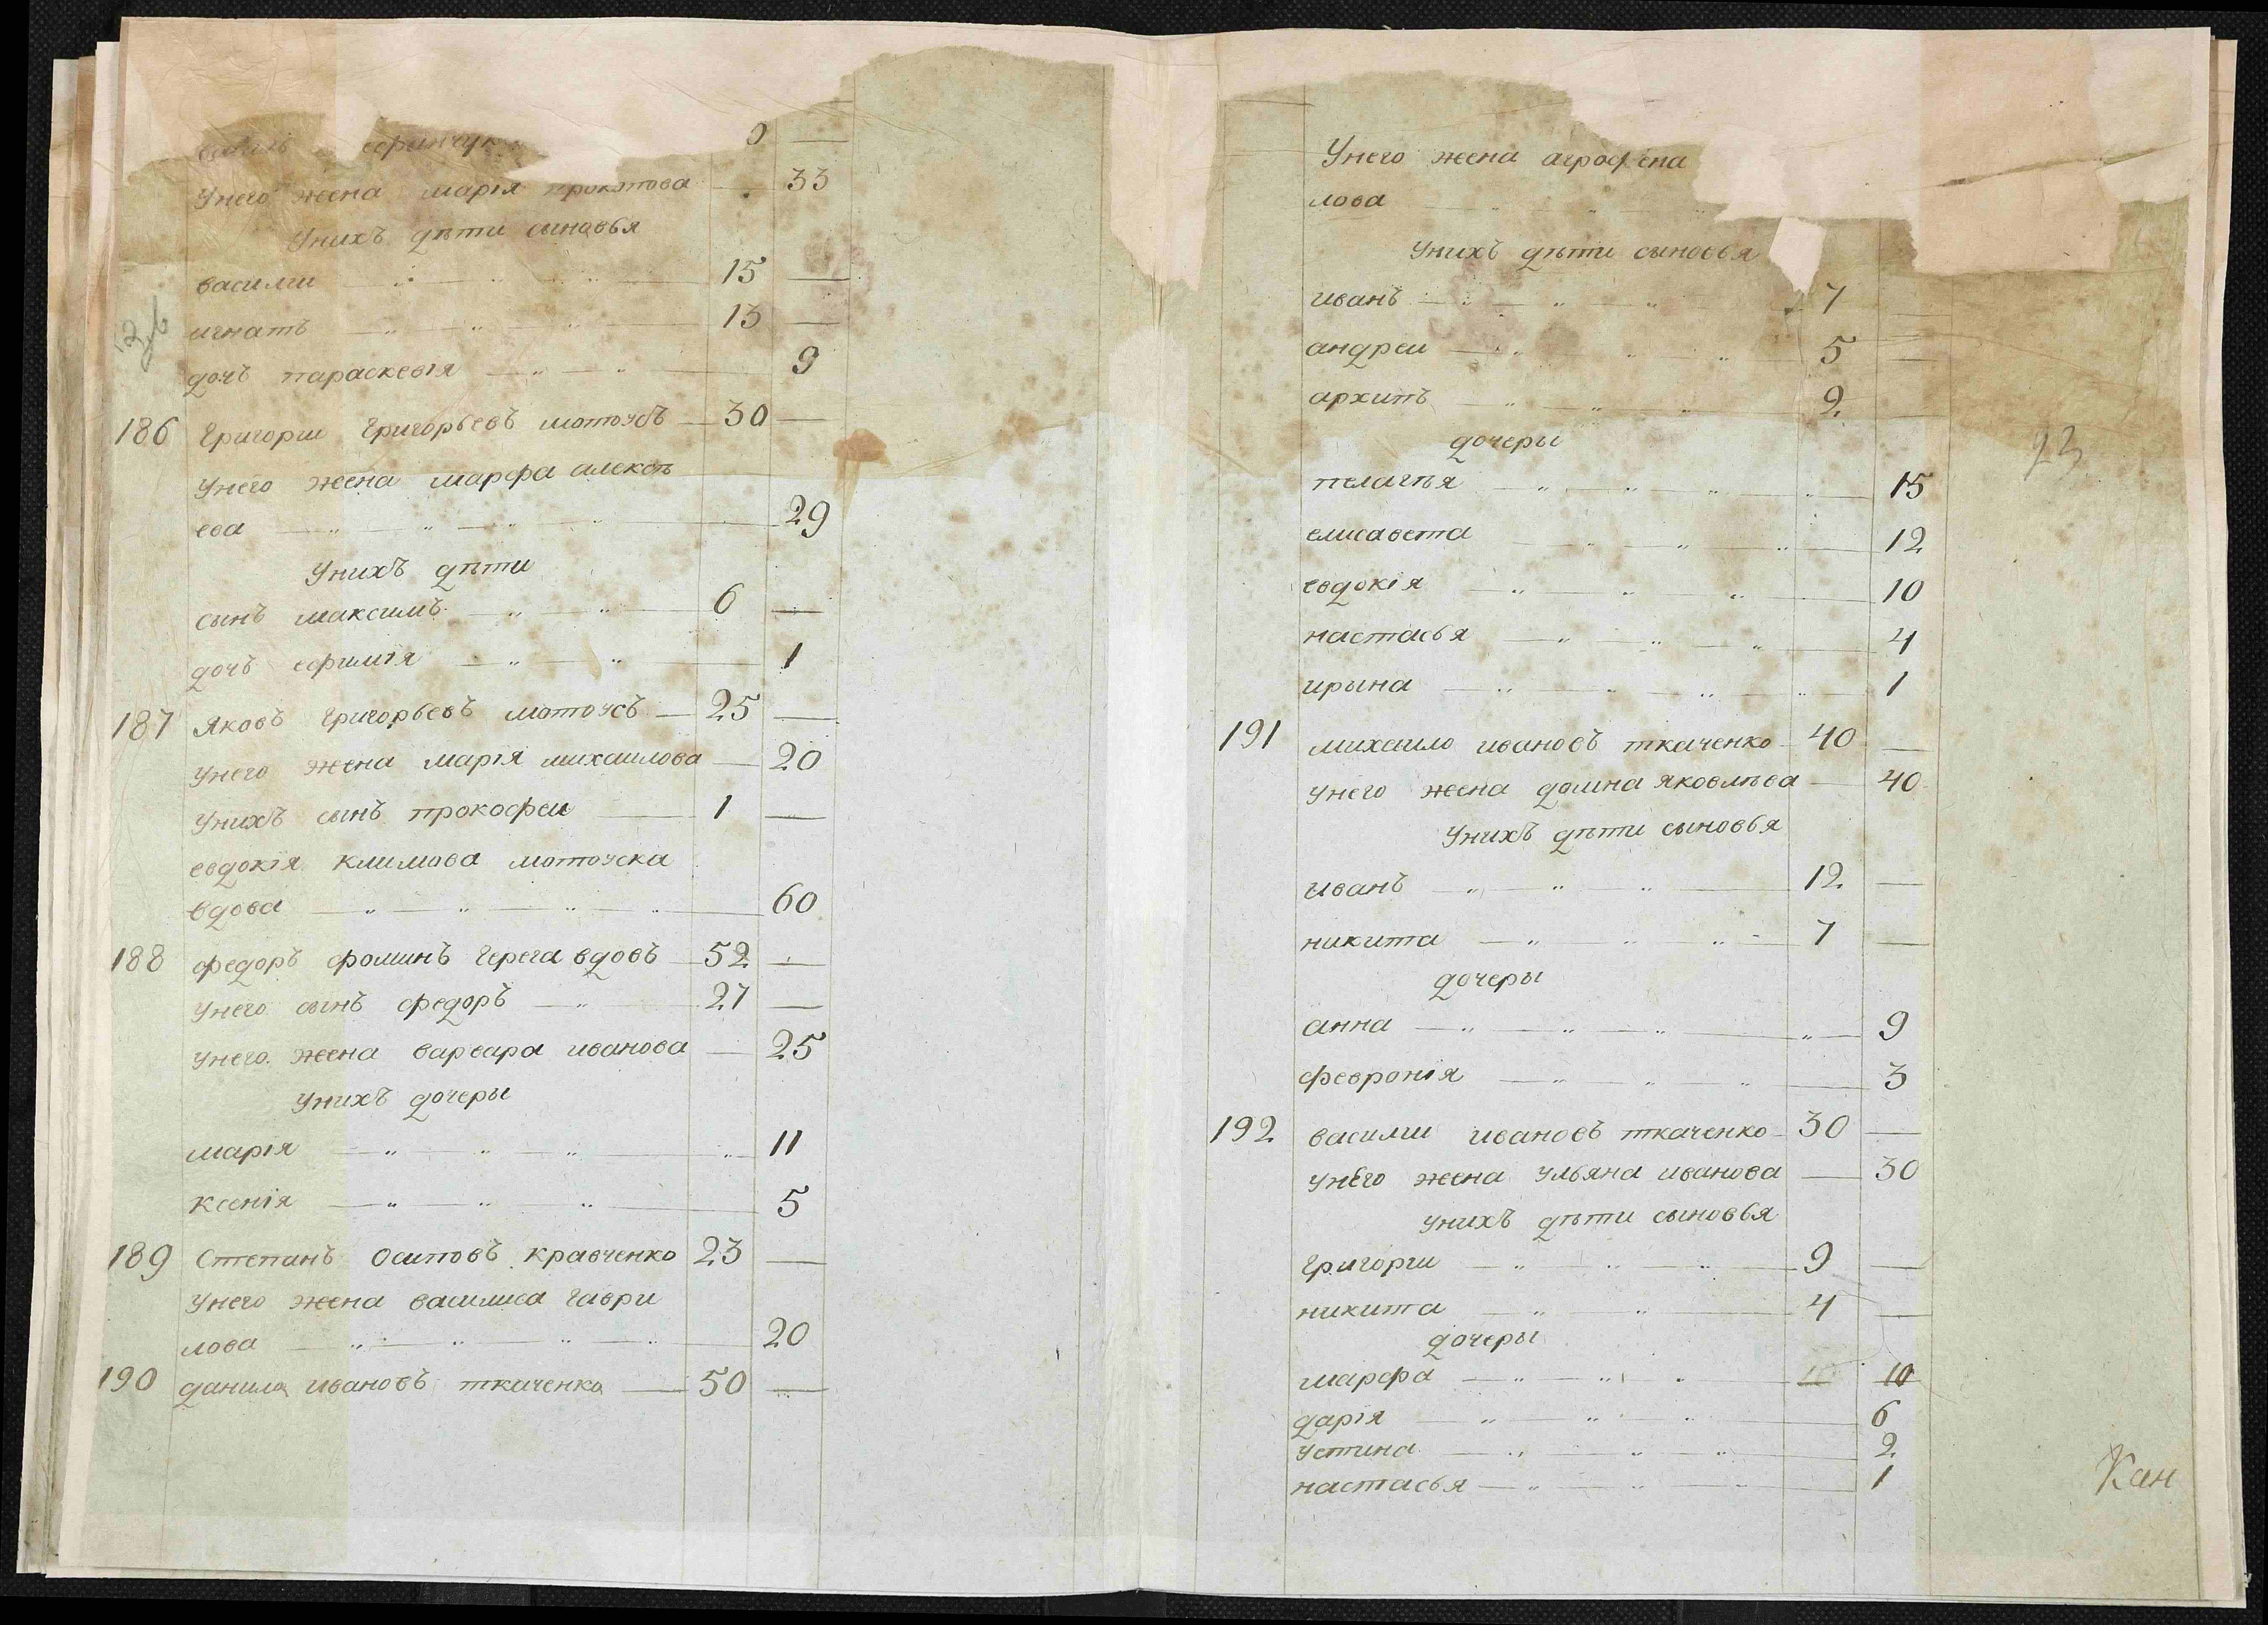 Унего жена марія прокопова 33
Унихъ дѣти сыновья
василии 15
игнатъ 13
дочъ параскевія 9
186 Григории Григорьевъ мотоусъ 30
Унего жена марфа алексѣ
ева 29
Унихъ дѣти
сынъ максимъ 6
дочъ ефимія 1
187 Яковъ Григорьевъ мотоусъ 25
Унего жена марія михаилова 20
Унихъ сынъ прокофеи 1
евдокія климова мотоуска
вдова 60
188 федоръ фоминъ Герега вдовъ 52
Унего сынъ федоръ 27
Унего жена варвара иванова 25
Унихъ дочеры
марія 11
ксенія 5
189 Степанъ Осиповъ кравченко 23
Унего жена василиса Гаври
лова 20
190 данила ивановъ ткаченко 50
Унего жена агрофена
лова
Унихъ дѣти сыновья
иванъ 7
андреи 5
архипъ 2
дочеры
23
пелагѣя 15
елисавета 12
евдокія 10
настасья 4
ирына 1
191 михаило ивановъ ткаченко 40
Унего жена домна яковлѣва 40
Унихъ дѣти сыновья
иванъ 12
никита 7
дочеры
анна 9
февронія 3
192 василии ивановъ ткаченко 30
Унего жена ульяна иванова 30
Унихъ дѣти сыновья
Григории 9
никита 4
дочеры
марфа 10 10
дарія 6
устина 2
настасья 1
Кан